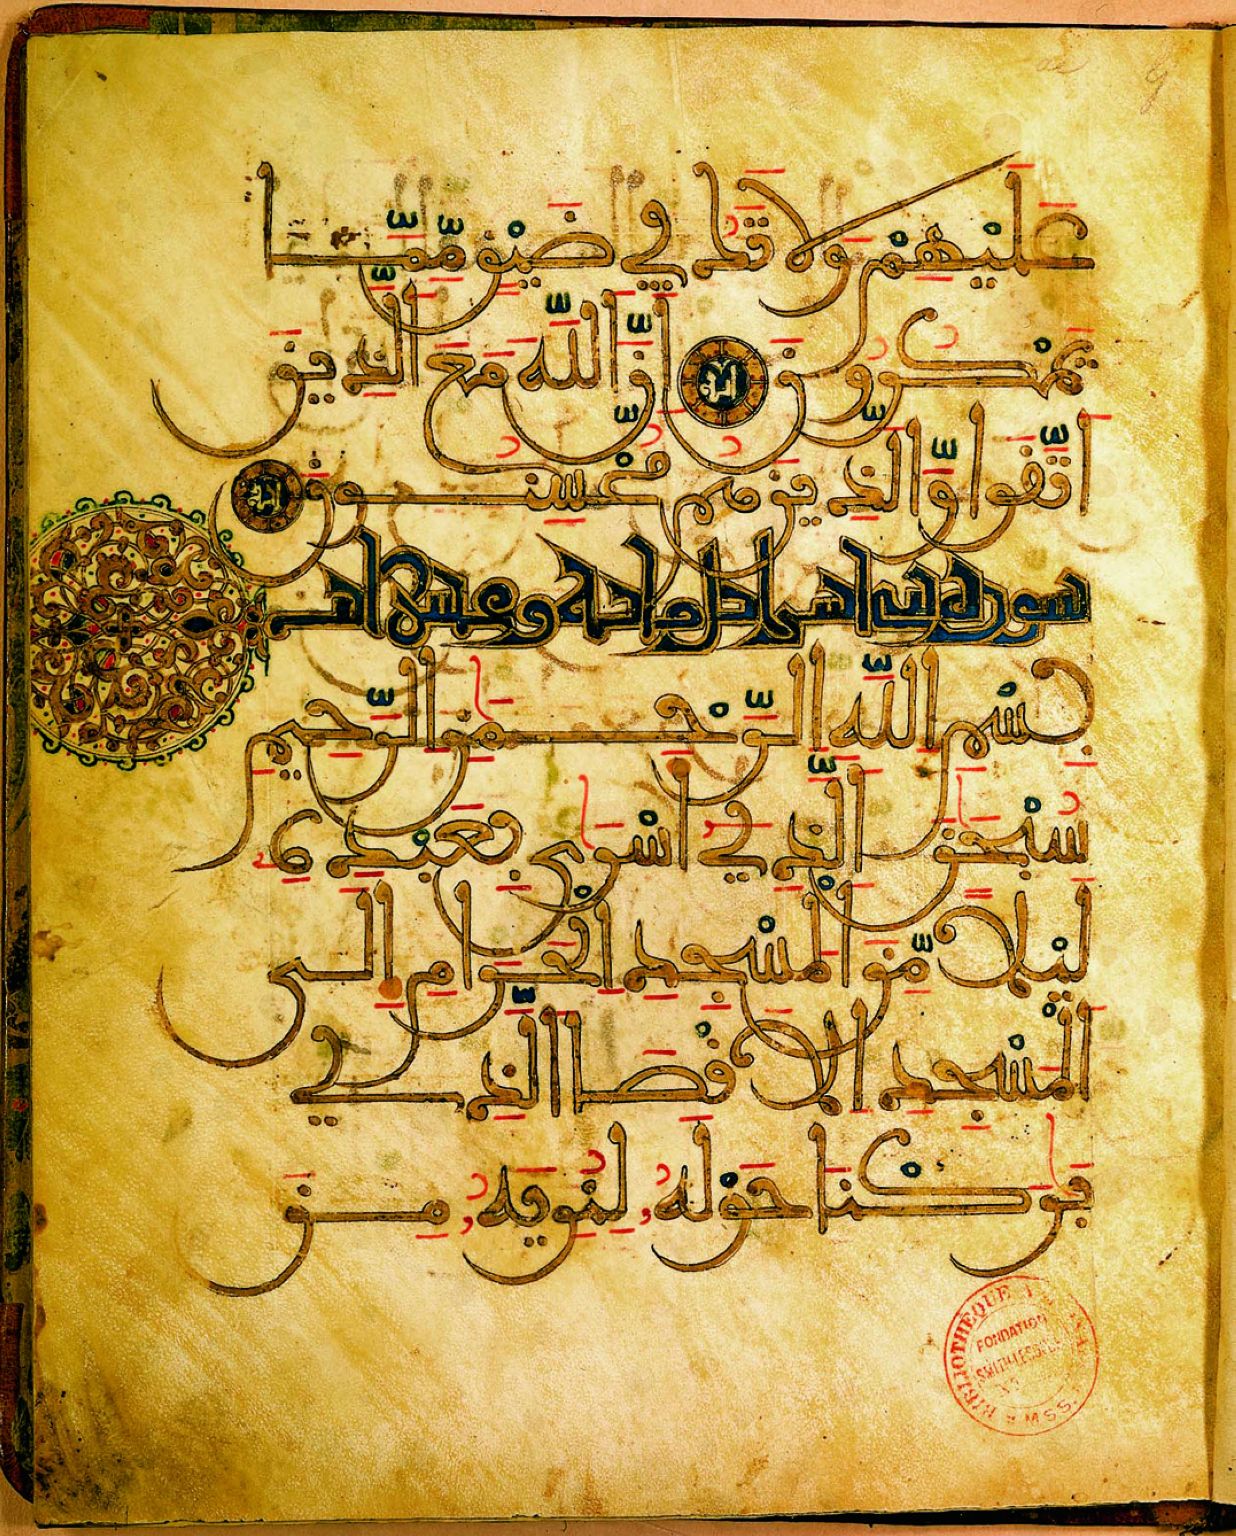 عَلَيْهِمْ وَلَا تَكُ فِي ضَيْقٍ مِّمَّا
يَمْكُرُونَ إِنَّ اللَّهَ مَعَ الَّذِينَ
اتَّقَوا وَّالَّذِينَ هُم مُّحْسِنُونَ
سورة بني اسرايل ماية وعشر
بِسْمِ اللَّهِ الرَّحْمَٰنِ الرَّحِيمِ
سُبْحَٰنَ الَّذِي أَسْرَىٰ بِعَبْدِهِ
لَيْلًا مِّنَ الْمَسْجِدِ الْحَرَامِ إِلَى
الْمَسْجِدِ الْأَقْصَا الَّذِي
بَٰرَكْنَا حَوْلَهُ لِنُرِيَهُ مِنْ
BIBLIOTHÈQUE
FONDATION
MSS.